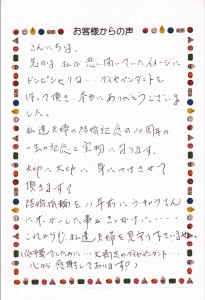 お客様からの声
こんにちは。
先日は私が思い描いていたイメージに
ドンピシャリな…ダイヤペンダントを
作って頂き、本当にありがとうございま
した。
私達夫婦の結婚記念の10周年の
一生の記念と宝物になります。
大切に大切に身につけさせて
頂きます?
結婚指輪を11年前に
オーダーした事がきっかけに・・・・
これからも、私達夫婦を見守り下さいませ。
大満足のダイヤペンダント…
心から感謝しております?)